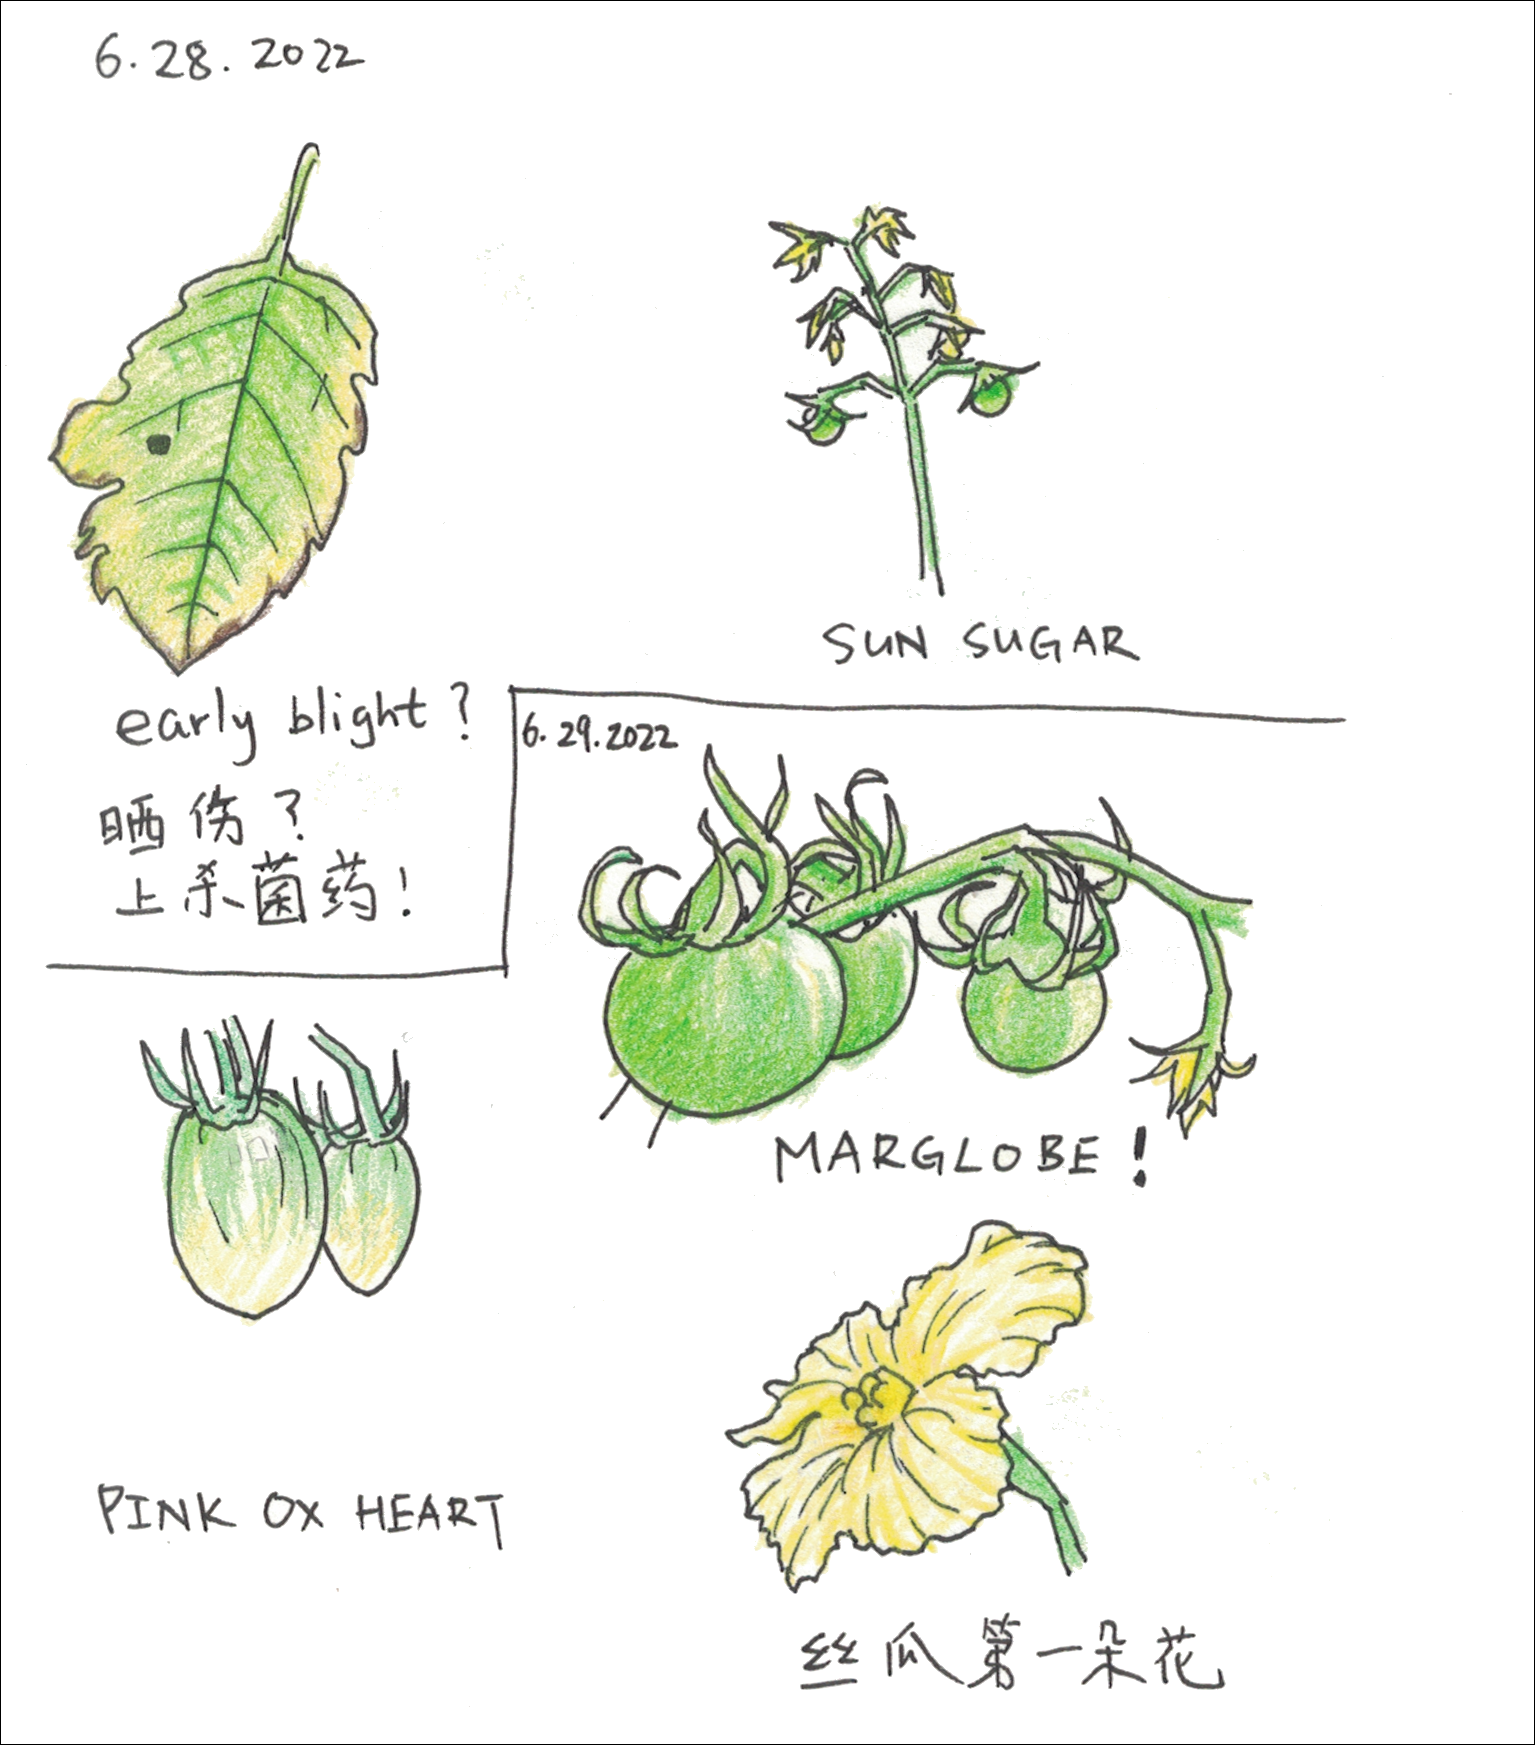 6.28.2022
SUN SUGAR
early blight?
晒伤?
上杀菌药!
6.29.2022
MARGLOBE!
PINK OX HEART
丝瓜第一朵花